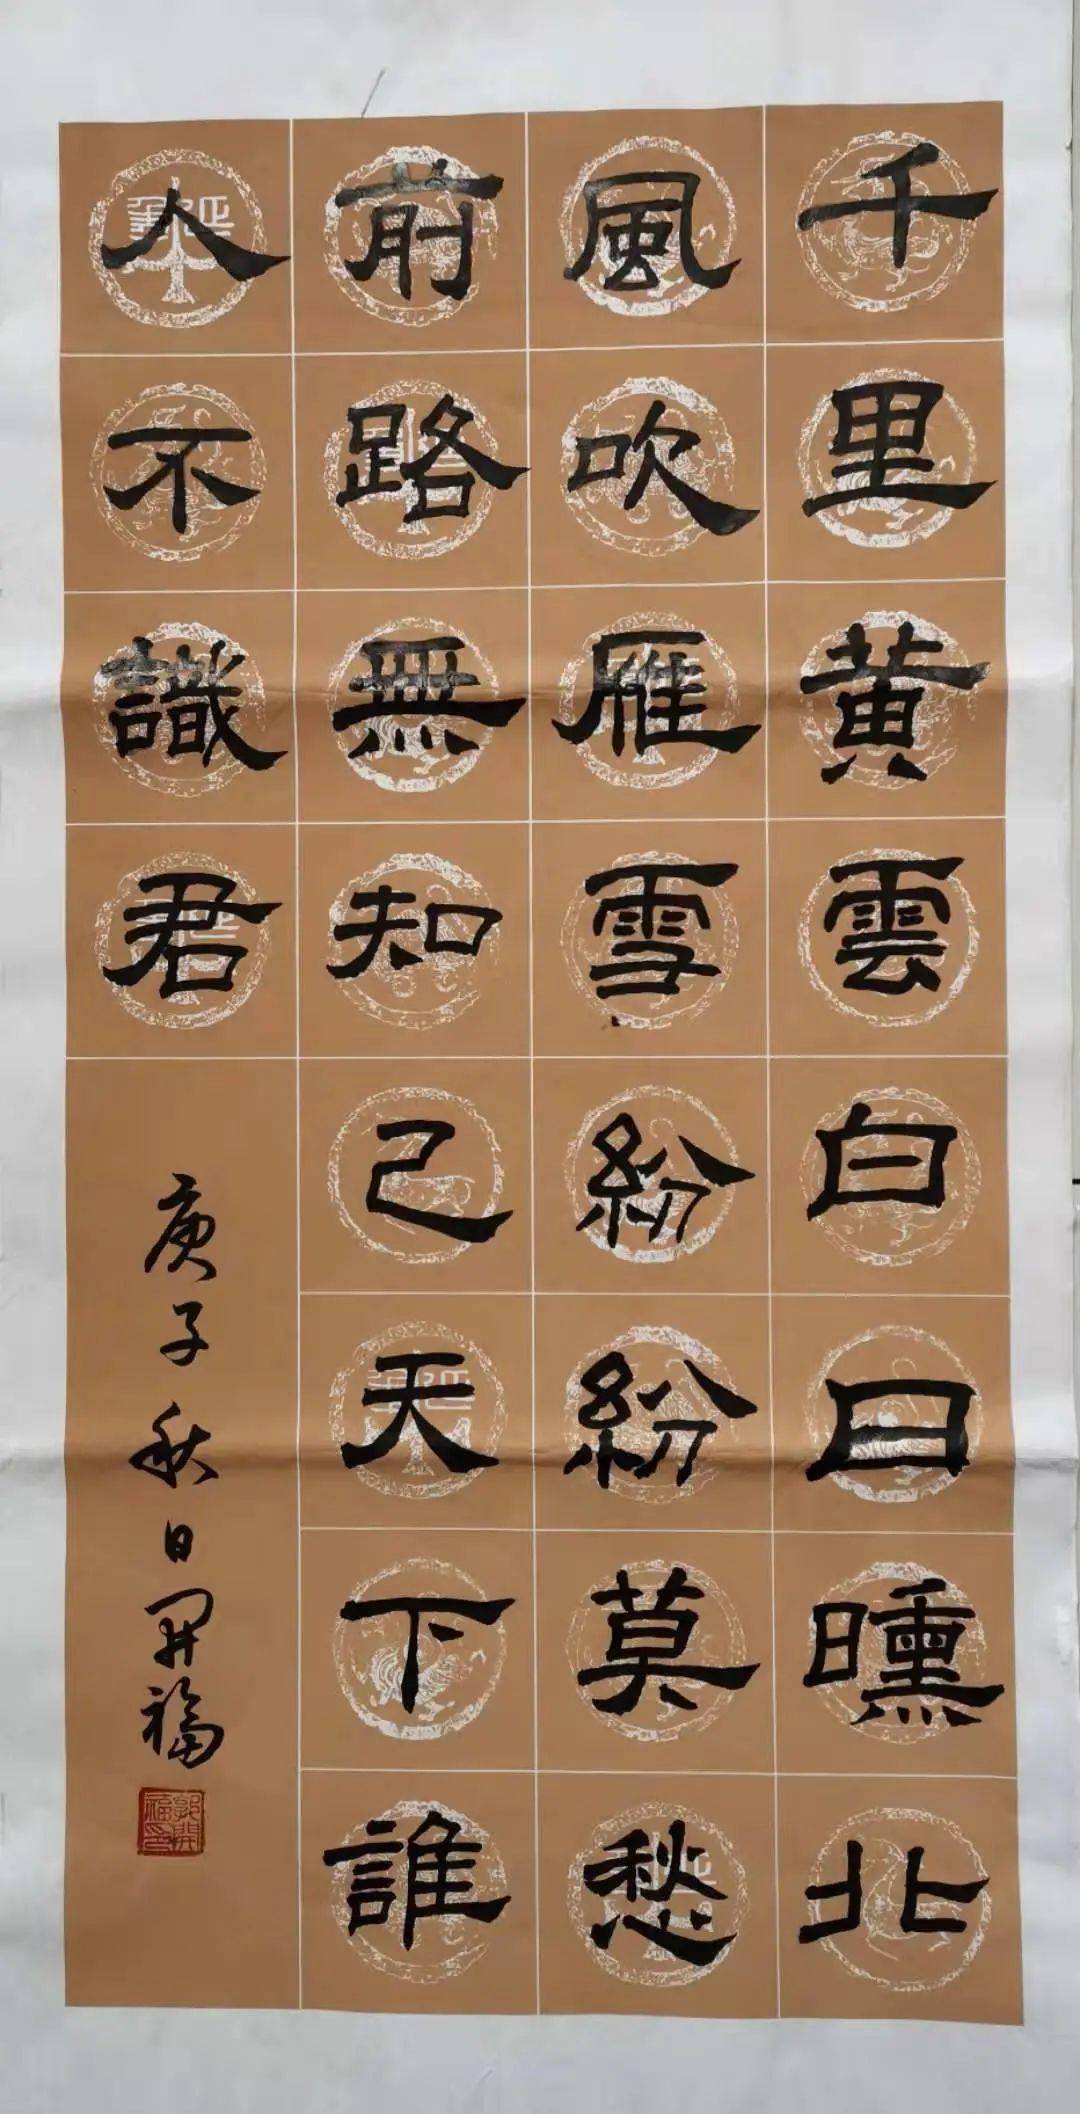 千里黄雲白日曛北
風吹雁雪紛紛莫愁
前路無知己天下誰
人不識君
庚子秋日開福
郭開福印